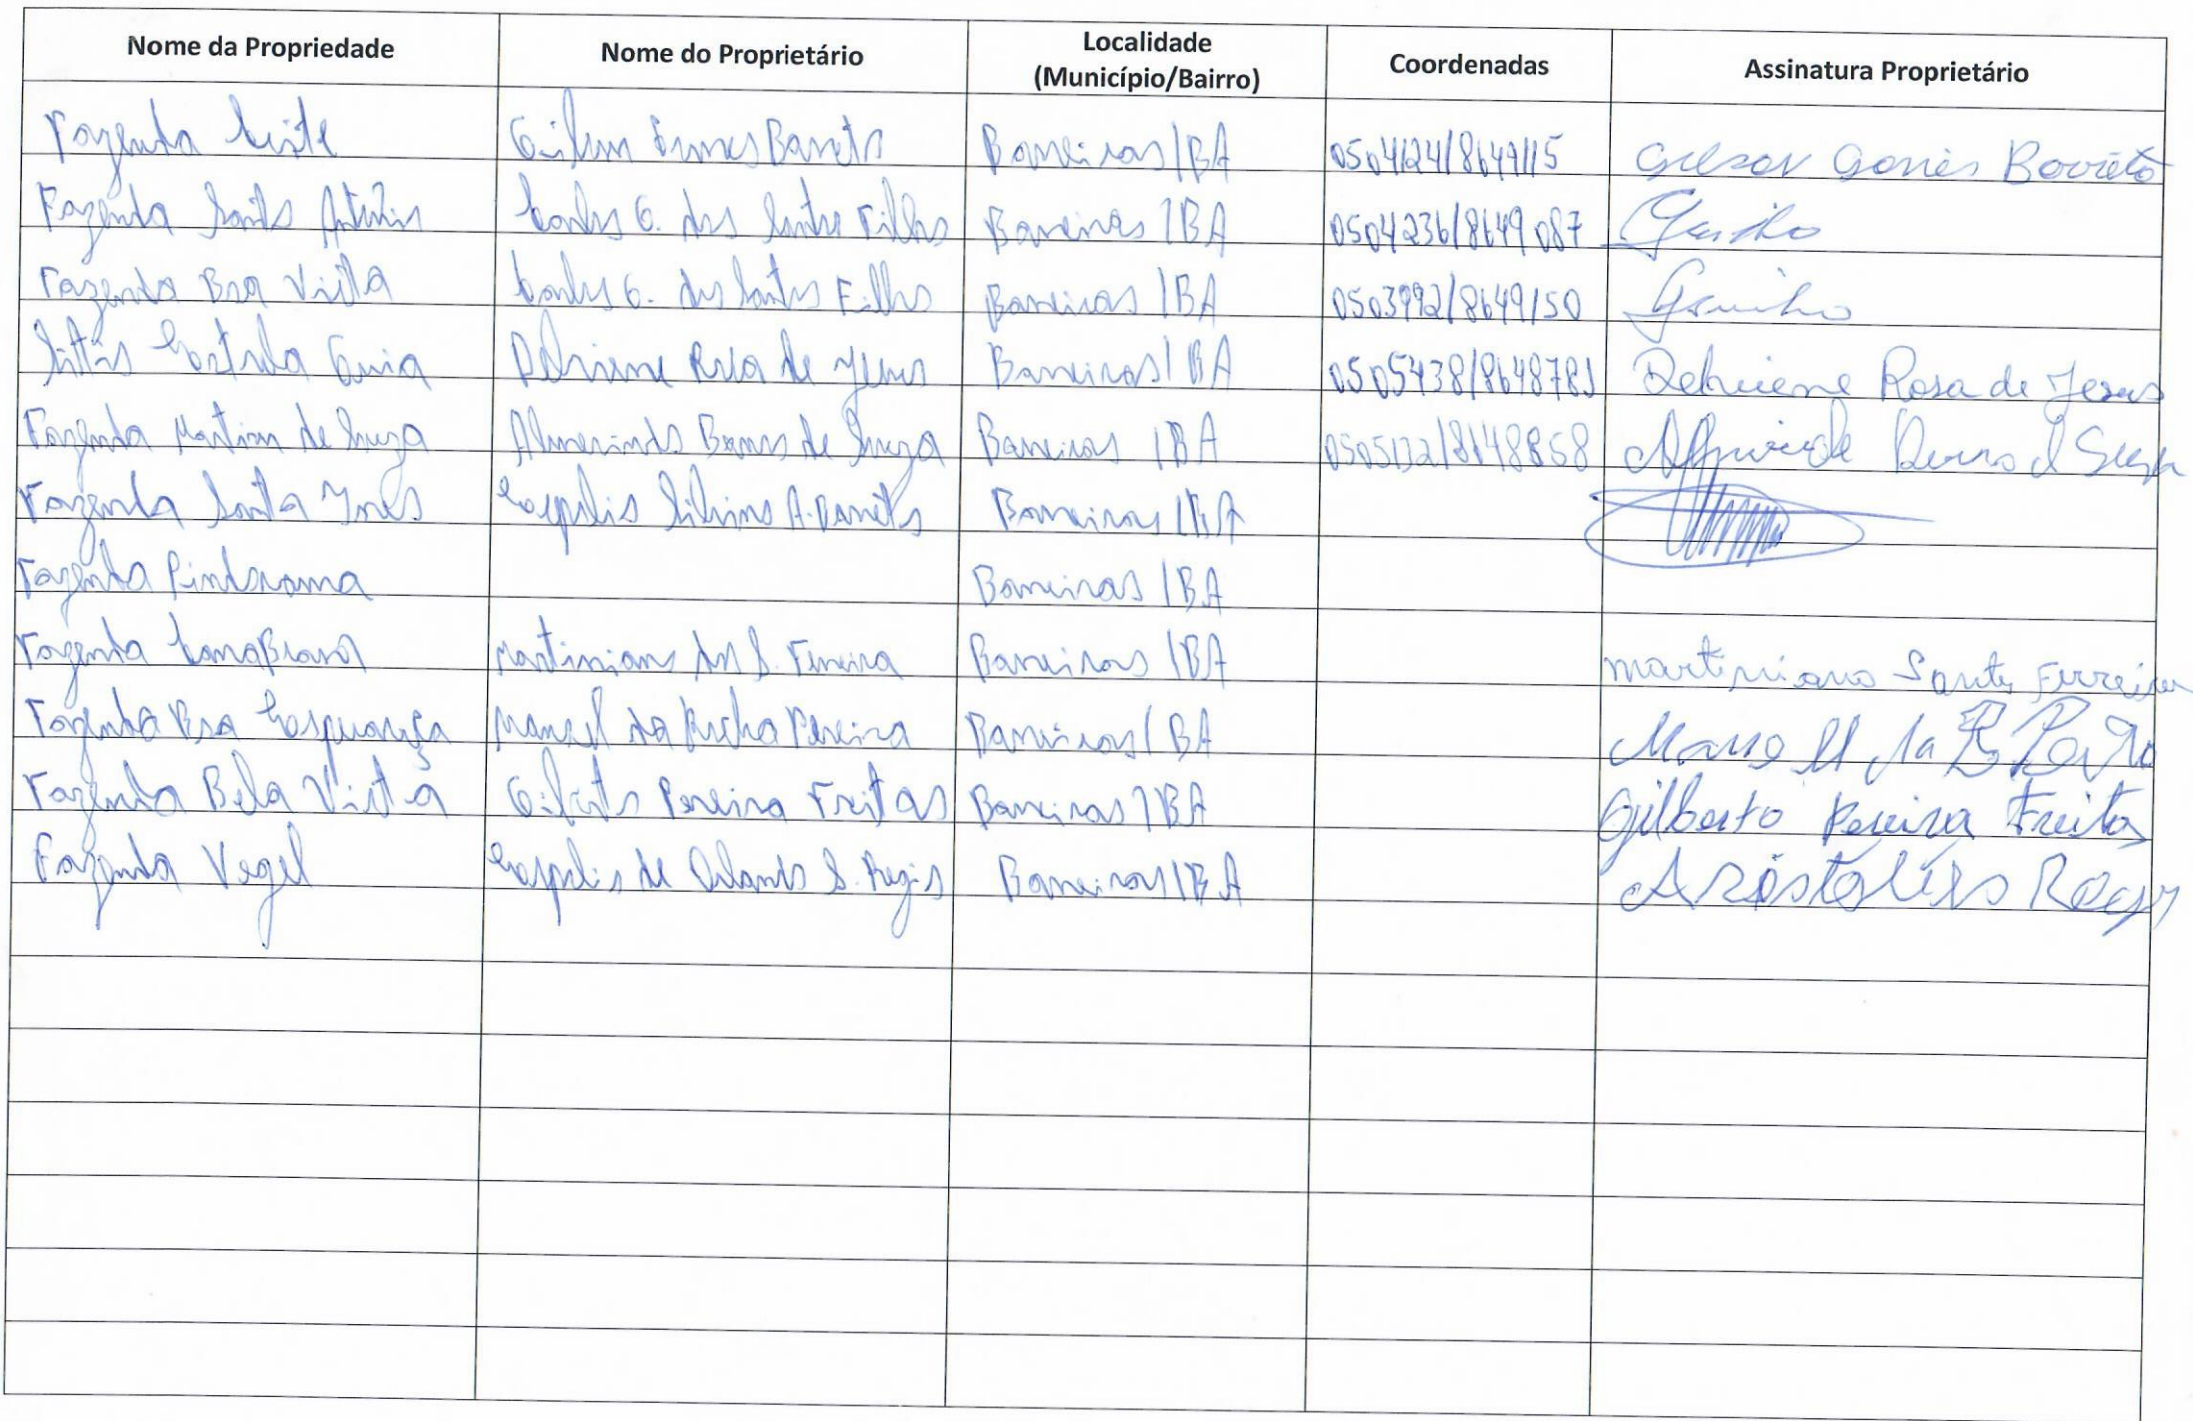 Nome da Propriedade Nome do Proprietário Localidade (Município/Bairro) Coordenadas Assinatura Proprietário
Fazenda Gilson Gomes Barreto Barreiras/BA 0504124/8649115 Gilson Gomes Barreto
Fazenda Santo Antônio Carlos G. dos Santos Filho Barreiras/BA 0504236/8649087
Fazenda Boa Vista Carlos G. dos Santos Filho Barreiras/BA 0503992/8649150
Delviene Rosa de Jesus Barreiras/BA 0505438/8648781 Delviene Rosa de Jesus
Fazenda Martins de Souza Almerindo Barros de Souza Barreiras/BA 0505132/8648858
Fazenda Santa Ines Espolio Silvino A. Barreto Barreiras/BA
Fazenda Pindorama Barreiras/BA
Fazenda Cana Brava Martiniano dos S. Ferreira Barreiras/BA Martiniano Santos Ferreira
Fazenda Boa Esperança Manoel da Rocha Pereira Barreiras/BA
Fazenda Bela Vista Gilberto Pereira Freitas Barreiras/BA Gilberto Pereira Freitas
Fazenda Vegel Espolio de Orlando S. Regis Barreiras/BA